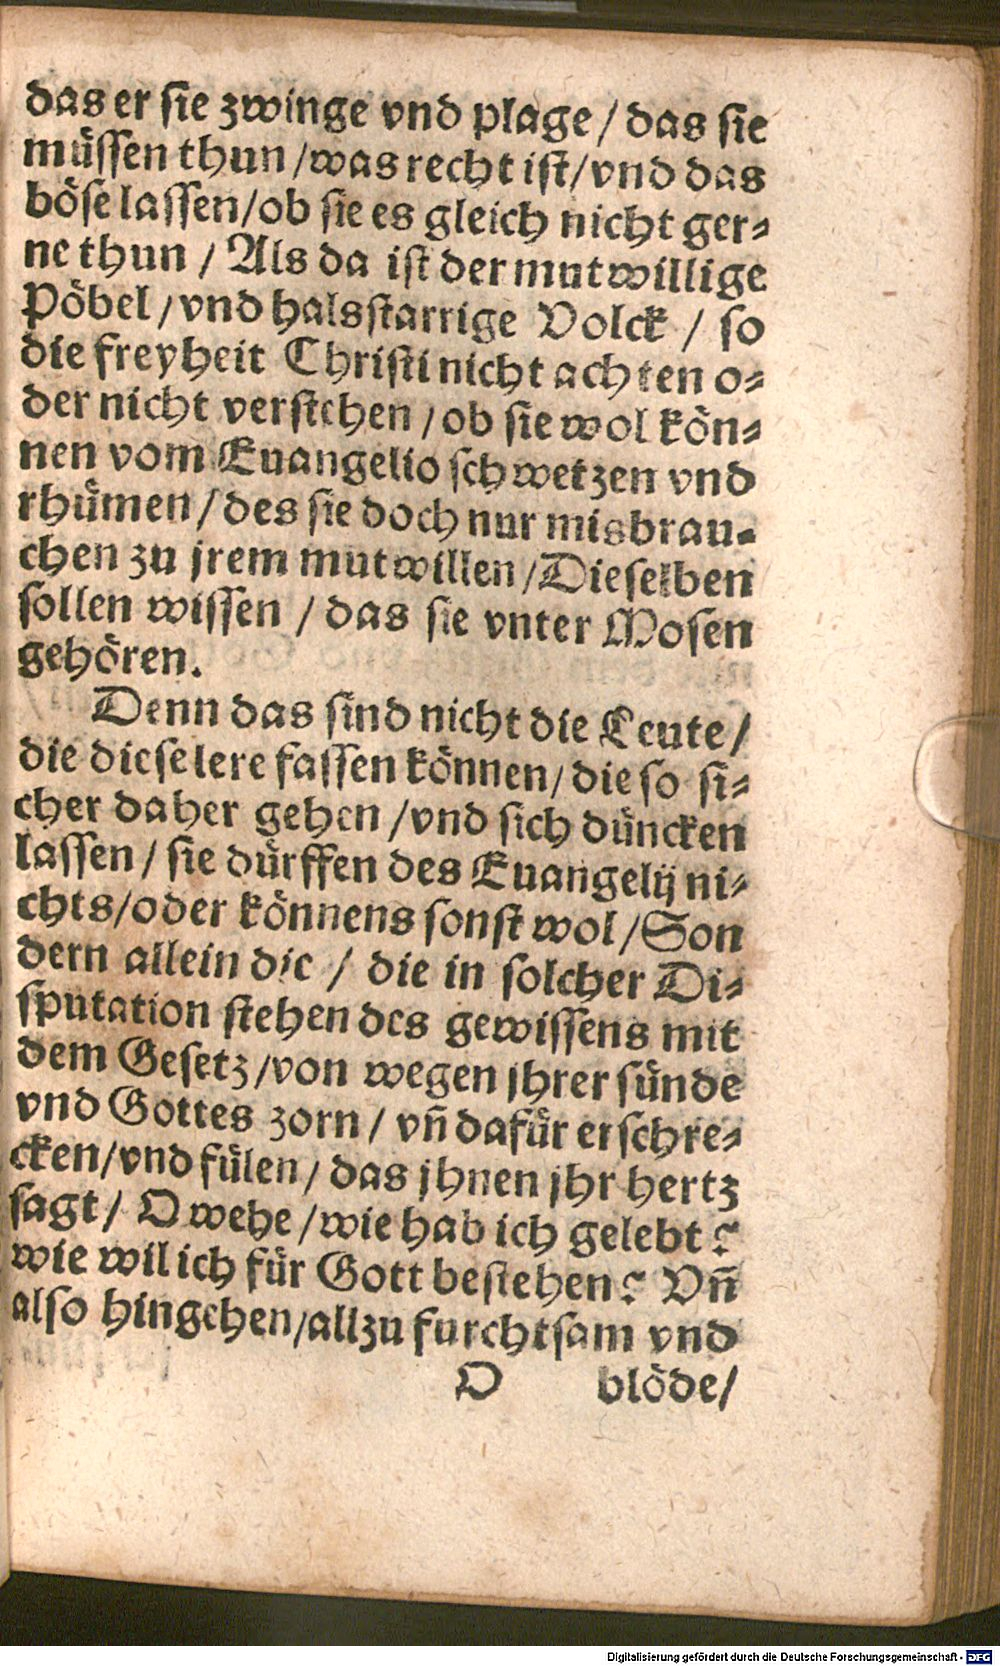 das er sie zwinge vnd plage / das sie
müssen thun / was recht ist / vnd das
böse lassen / ob sie es gleich nicht ger⸗
ne thun / Als da ist der mutwillige
Pöbel / vnd halsstarrige Volck / so
die freyheit Christi nicht achten o⸗
der nicht verstehen / ob sie wol kön⸗
nen vom Euangelio schwetzen vnd
rhümen / des sie doch nur misbrau⸗
chen zu jrem mutwillen / Dieselben
sollen wissen / das sie vnter Mosen
gehören.
Denn das sind nicht die Leute /
die diese lere fassen können / die so si⸗
cher daher gehen / vnd sich düncken
lassen / sie dürffen des Euangelij ni⸗
chts / oder könnens sonst wol / Son
dern allein die / die in solcher Di⸗
sputation stehen des gewissens mit
dem Gesetz / von wegen jhrer sünde
vnd Gottes zorn / vñ dafür erschre⸗
cken / vnd fülen / das jhnen jhr hertz
sagt / O wehe / wie hab ich gelebt?
wie wil ich für Gott bestehen? Vñ
also hingehen / allzu furchtsam vnd
O blöde /
Digitalisierung gefördert durch die Deutsche Forschungsgemeinschaft - DFG